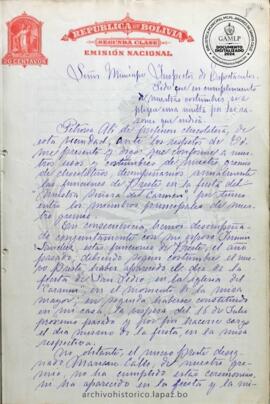 REPUBLICA DE BOLIVIA
SEGUNDA CLASE
EMISIÓN NACIONAL
20 CENTAVOS
GAMLP
DOCUMENTO
DIGITALIZADO
2024
Señor Munícipe Inspector de Espectáculos.
Pide que en cumplimiento
de nuestras costumbres se
aplique una multa por las ra-
zones que indica.
Petrona Ali de profesion chocolatera, de
esta vecindad, ante los respetos de Ud.
me presento y digo: que conforme a nues-
tros usos y costumbres de nuestro gremio
de chocolateros desempeñamos anualmente
las funciones de Preste en la fiesta del
"Carmen"
entre los miembros principales de nues-
tro gremio.
En consecuencia, hemos desempeña-
do conjuntamente con mi esposo
estas funciones de Preste, el año
pasado, debiendo segun costumbre el nue-
vo Preste haber aparecido el dia de la
fiesta de San Pedro, en la iglesia del
"Carmen", en el momento de la misa
mayor; en seguida haberse constituido
en mi casa la vispera del 16 de Julio
proximo pasado y por fin hacerse cargo
el dia mismo de la fiesta en la misa
respectiva.
No obstante, el nuevo Preste desig-
nado Mariano Calle, de nuestro gre-
mio, no ha cumplido estas ceremonias,
ni ha aparecido en la fiesta y la mi-
archivohistorico.lapaz.bo